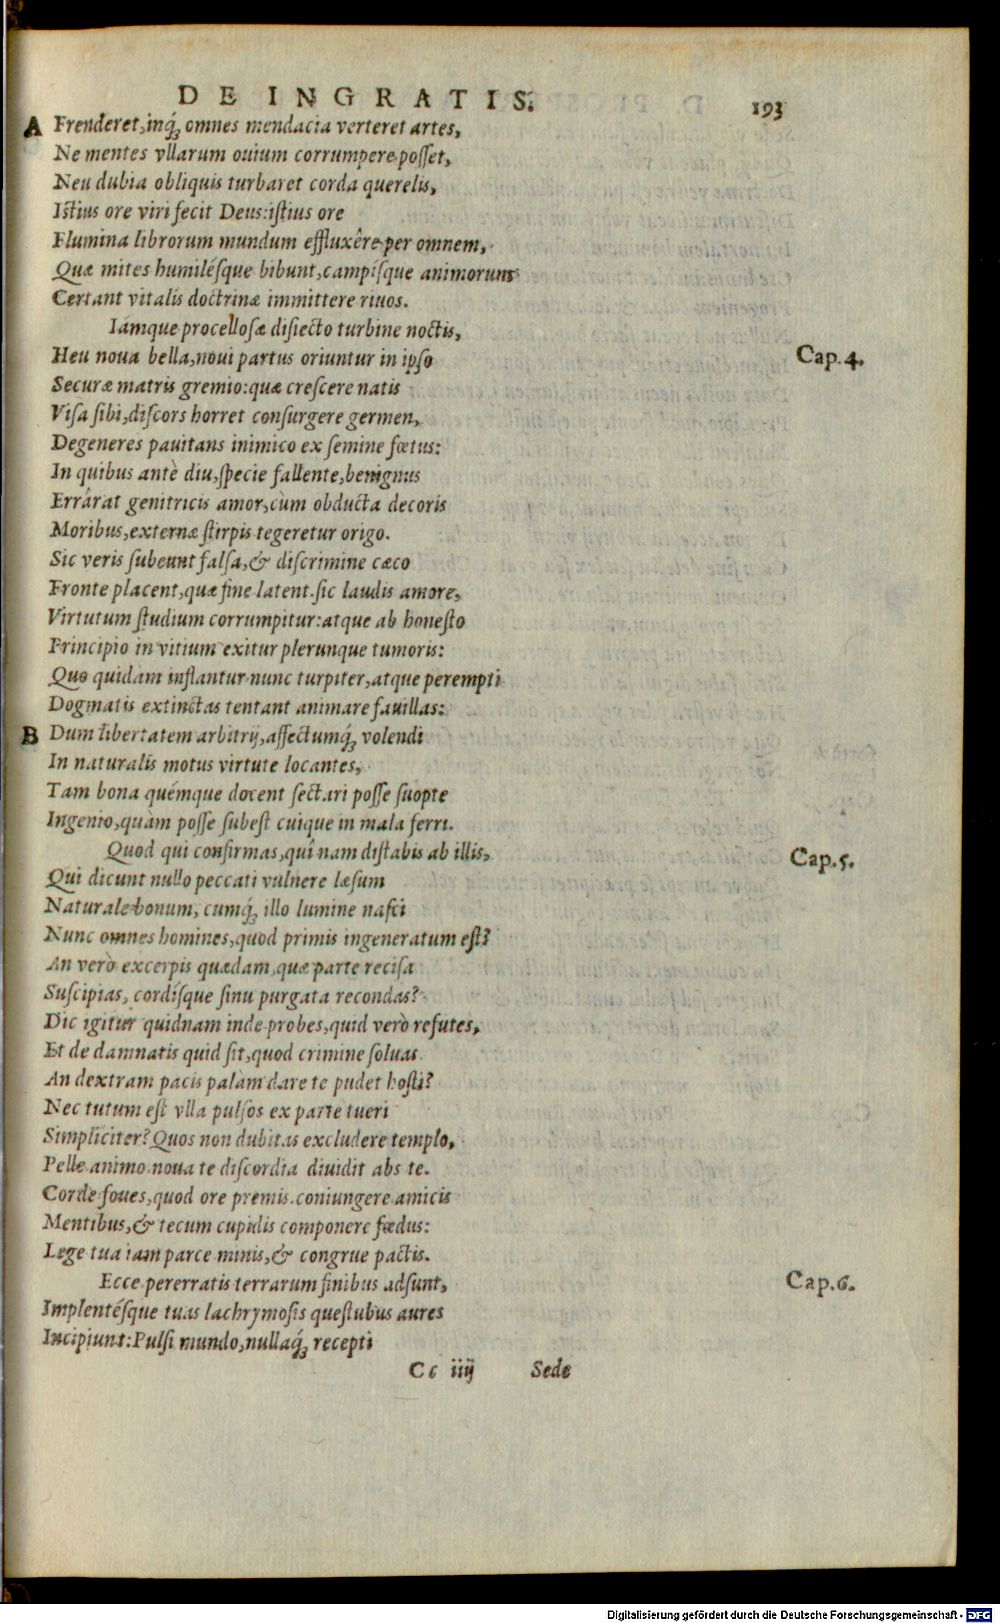 DE INGRATIS. 193
A Frenderet, inq́; omnes mendacia verteret artes,
Ne mentes vllarum ouium corrumpere posset,
Neu dubia obliquis turbaret corda querelis,
Istius ore viri fecit Deus: istius ore
Flumina librorum mundum effluxêre per omnem,
Quæ mites humilésque bibunt, campísque animorum
Certant vitalis doctrinæ immittere riuos.
Iámque procellosæ disiecto turbine noctis,
Heu noua bella, noui partus oriuntur in ipso Cap. 4.
Securæ matris gremio: quæ crescere natis
Visa sibi, discors horret consurgere germen,
Degeneres pauitans inimico ex semine fœtus:
In quibus antè diu, specie fallente, benignus
Errârat genitricis amor, cùm obducta decoris
Moribus, externæ stirpis tegeretur origo.
Sic veris subeunt falsa, & discrimine cæco
Fronte placent, quæ fine latent. sic laudis amore,
Virtutum studium corrumpitur: atque ab honesto
Principio in vitium exitur plerunque tumoris:
Quo quidam inflantur nunc turpiter, atque perempti
Dogmatis extinctas tentant animare fauillas:
B Dum libertatem arbitrij, affectumq́; volendi
In naturalis motus virtute locantes,
Tam bona quémque docent sectari posse suopte
Ingenio, quàm posse subest cuique in mala ferri.
Quod qui confirmas, quî nam distabis ab illis, Cap. 5.
Qui dicunt nullo peccati vulnere læsum
Naturale bonum, cumq́; illo lumine nasci
Nunc omnes homines, quod primis ingeneratum est?
An verò excerpis quædam, quæ parte recisa
Suscipias, cordísque sinu purgata recondas?
Dic igitur quidnam inde probes, quid verò refutes,
Et de damnatis quid sit, quod crimine soluas.
An dextram pacis palàm dare te pudet hosti?
Nec tutum est vlla pulsos ex parte tueri
Simpliciter? Quos non dubitas excludere templo,
Pelle animo. noua te discordia diuidit abs te.
Corde foues, quod ore premis. coniungere amicis
Mentibus, & tecum cupidis componere fœdus:
Lege tua iam parce minis, & congrue pactis.
Ecce pererratis terrarum finibus adsunt, Cap. 6.
Implentésque tuas lachrymosis questubus aures
Incipiunt: Pulsi mundo, nullaq́; recepti
Cc iiij Sede
Digitalisierung gefördert durch die Deutsche Forschungsgemeinschaft - DFG